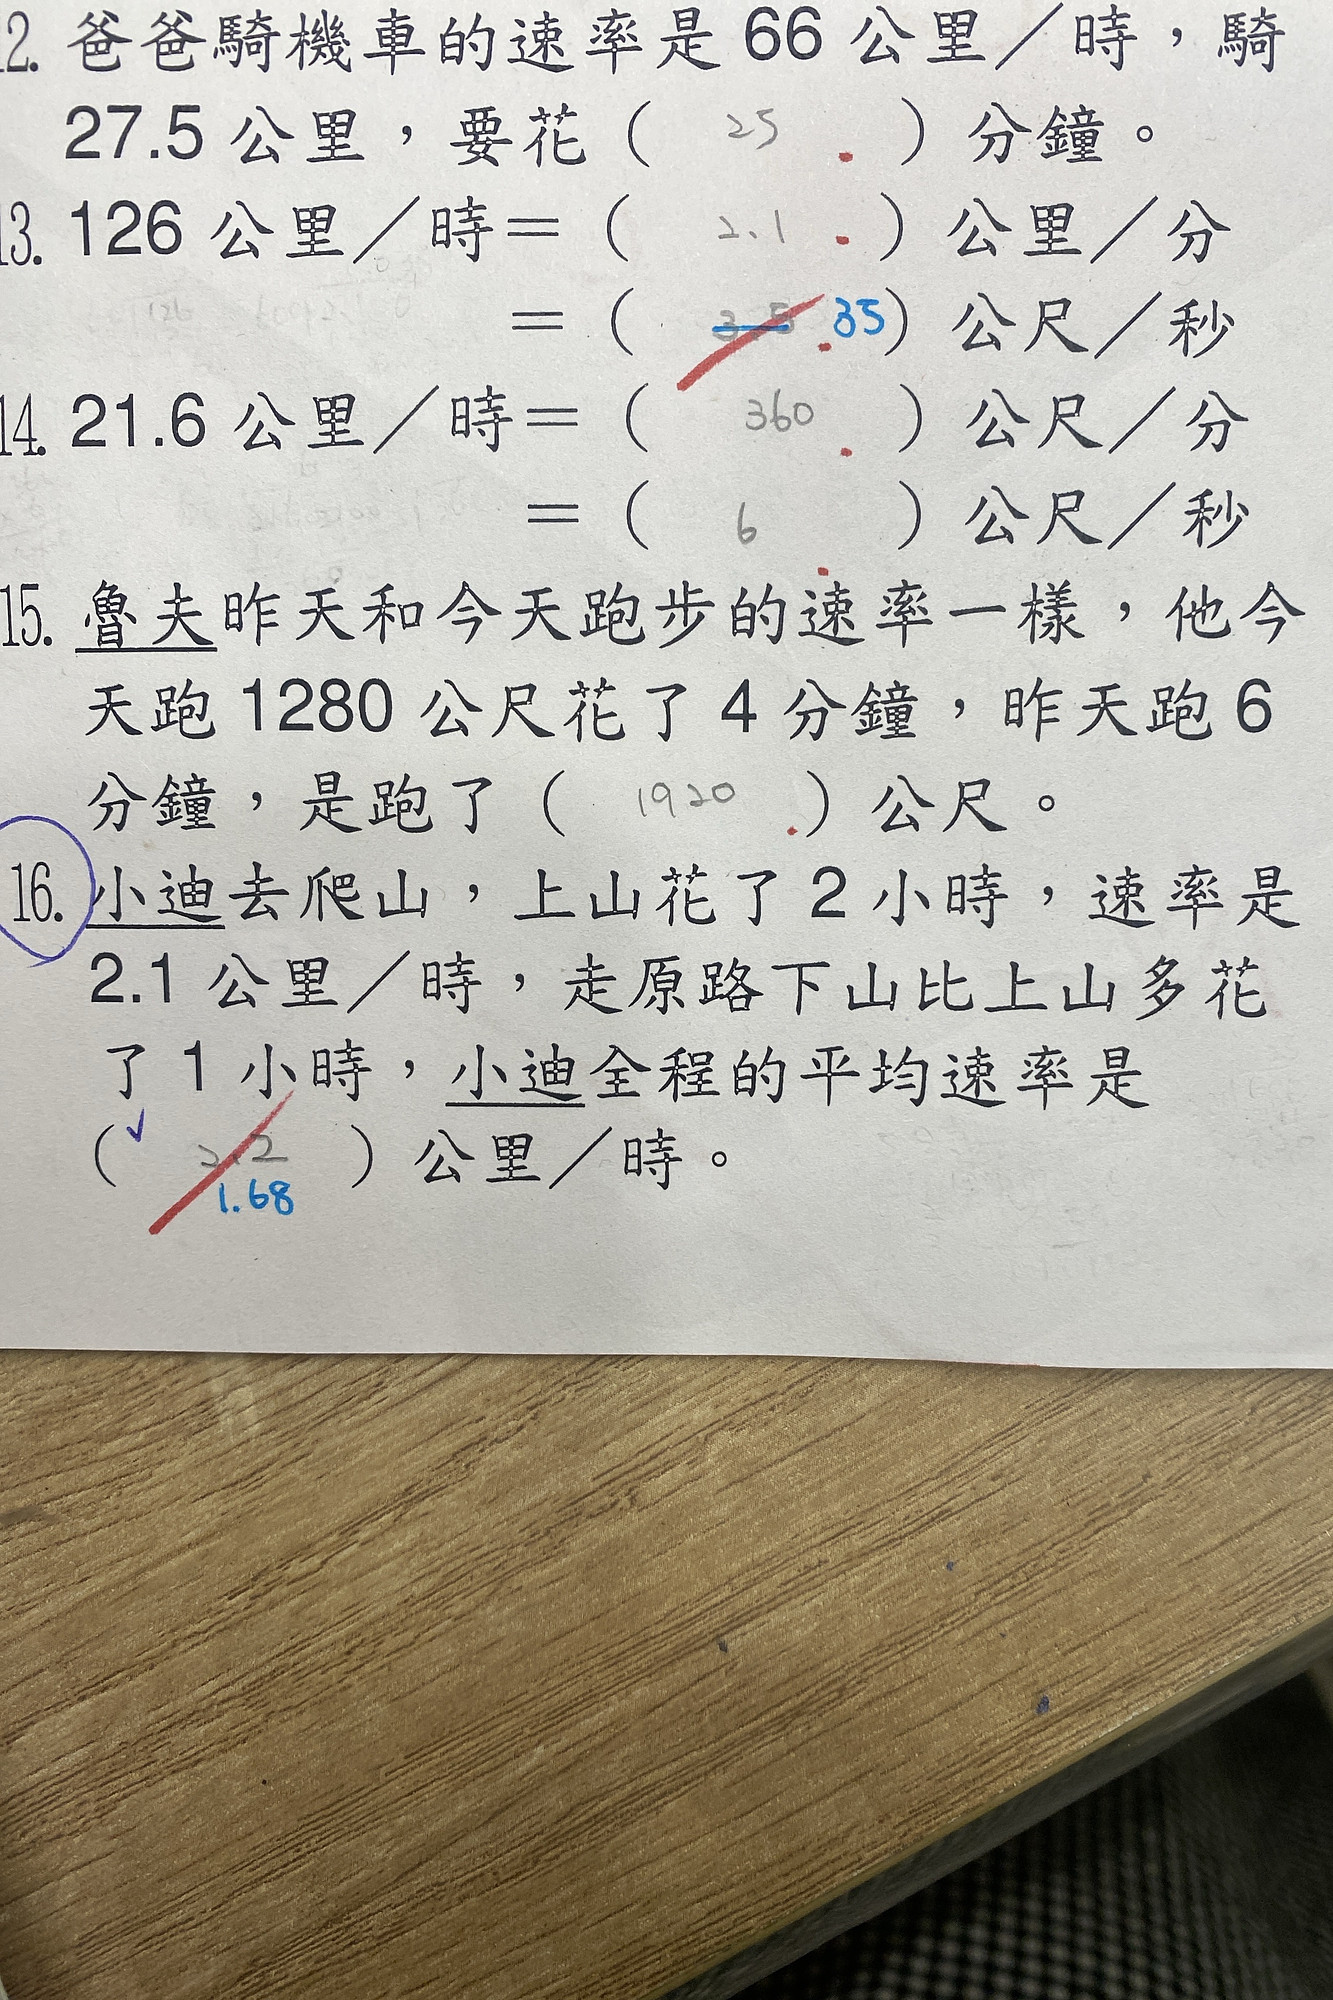 12. 爸爸騎機車的速率是 66 公里／時，騎
27.5 公里，要花（ 25 ）分鐘。
13. 126 公里／時＝（ 2.1 ）公里／分
＝（ 3.5 35）公尺／秒
14. 21.6 公里／時＝（ 360 ）公尺／分
＝（ 6 ）公尺／秒
15. 魯夫昨天和今天跑步的速率一樣，他今
天跑 1280 公尺花了 4 分鐘，昨天跑 6
分鐘，是跑了（ 1920 ）公尺。
16. 小迪去爬山，上山花了 2 小時，速率是
2.1 公里／時，走原路下山比上山多花
了 1 小時，小迪全程的平均速率是
（ 2.2 ）公里／時。
1.68